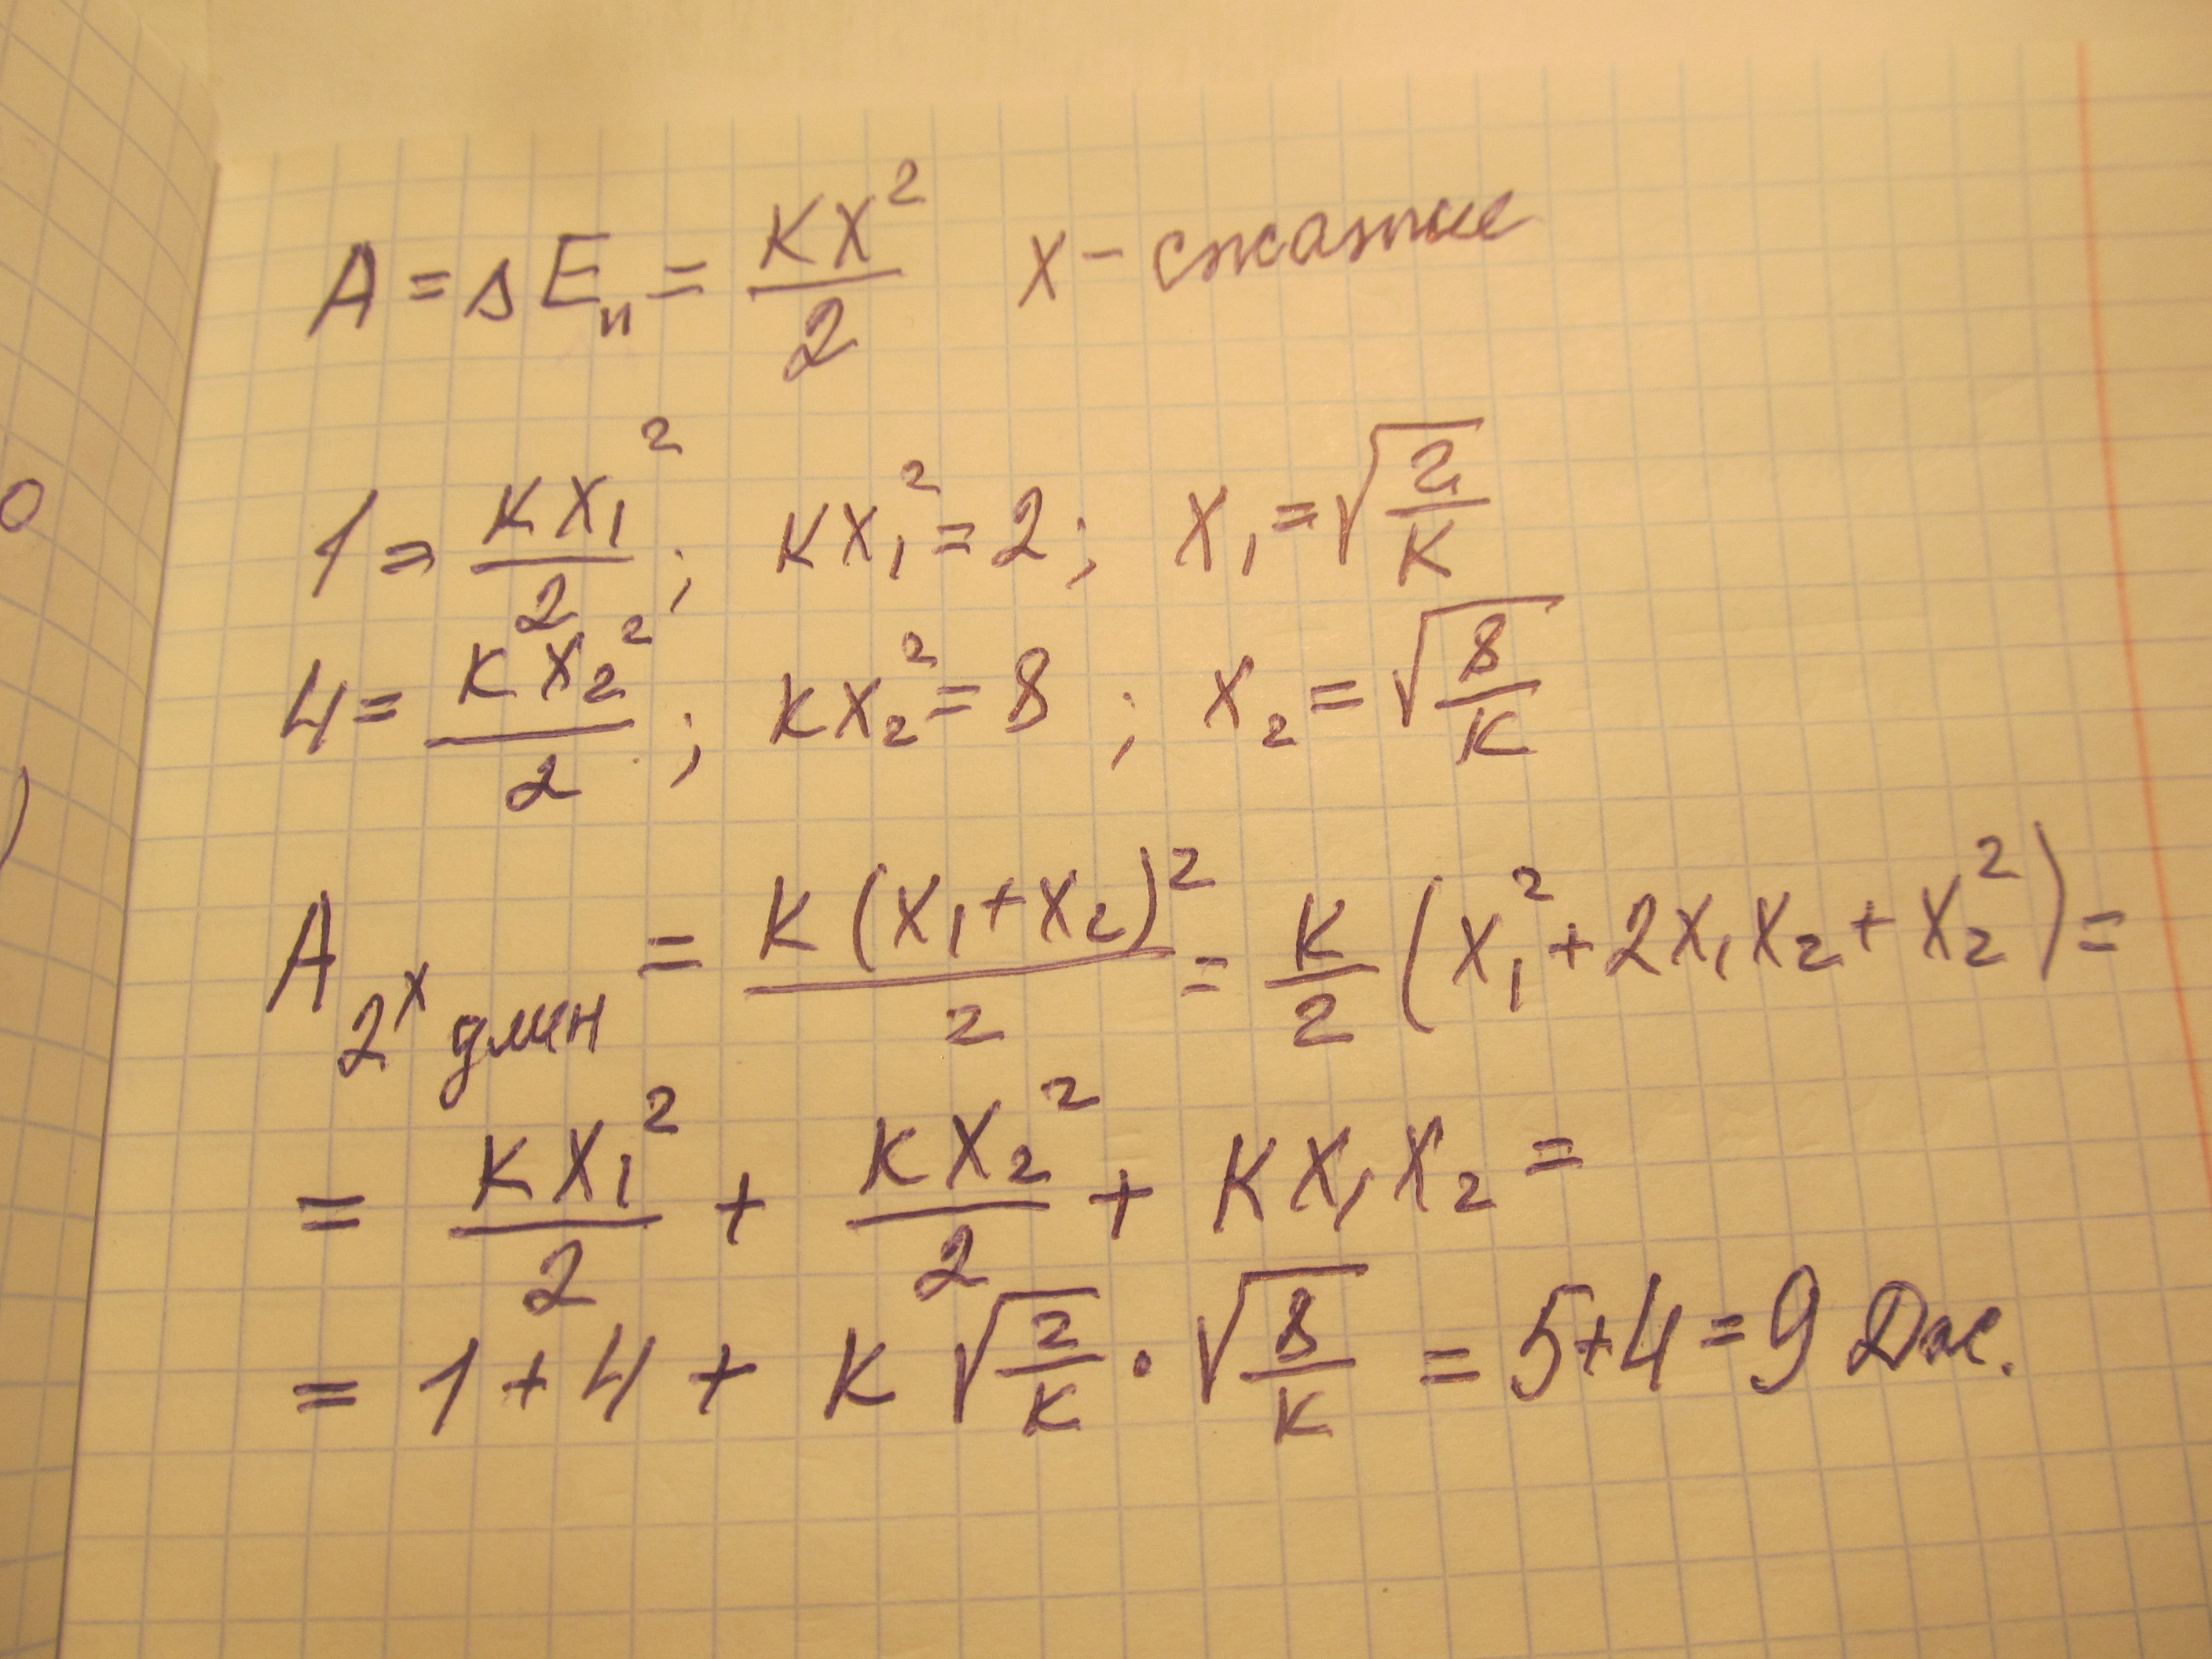 A = ΔEп = KX²/2 x - сжатие
1 = KX₁²/2; KX₁² = 2; X₁ = √(2/K)
4 = KX₂²/2; KX₂² = 8; X₂ = √(8/K)
A 2ˣ длин = K(X₁+X₂)²/2 = K/2 (X₁² + 2X₁X₂ + X₂²) =
= KX₁²/2 + KX₂²/2 + KX₁X₂ =
= 1 + 4 + K √(2/K) · √(8/K) = 5+4 = 9 Дж.